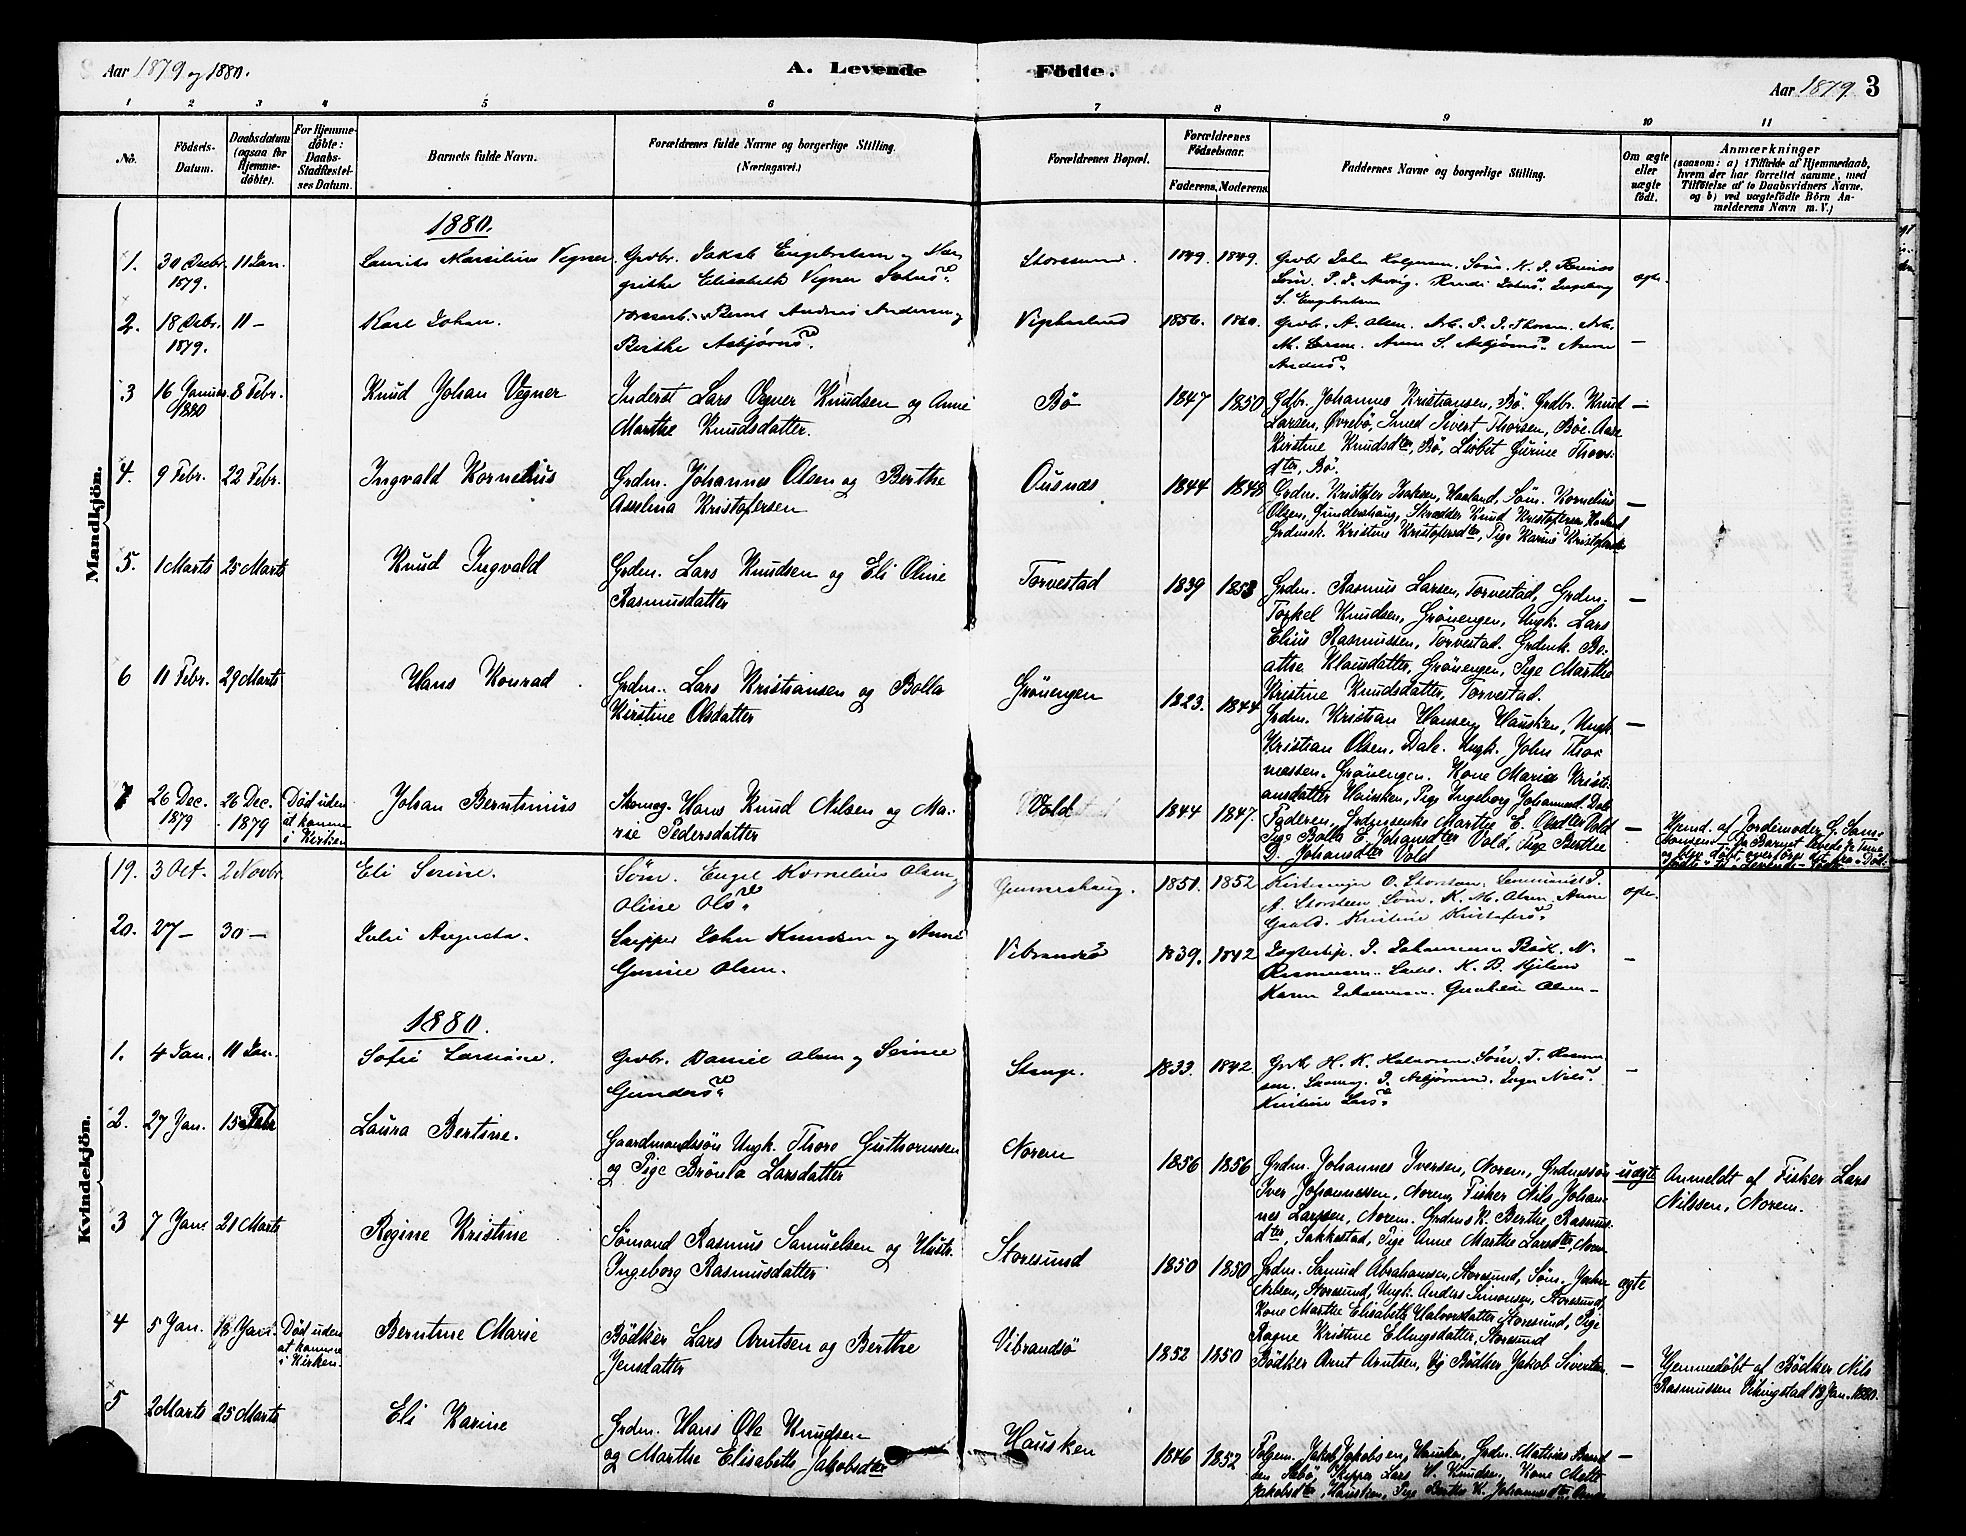 Aar 1879 og 1880.
A. Levende Födte.
Aar 1879. 3
1 2 3 4 5 6 7 8 9 10 11
No.
Födsels-
Datum.
Daabsdatum
(ogsaa for
Hjemme-
döbte).
For Hjemme-
döbte:
Daabs-
Stadfæstel-
ses Datum.
Barnets fulde Navn.
Forældrenes fulde Navne og borgerlige Stilling.
(Næringsvei.)
Forældrenes Bopæl.
Forældrenes
Födselsaar.
Faderens. Moderens.
Faddernes Navne og borgerlige Stilling.
Om ægte
eller
uægte
født.
Anmærkninger
(saasom: a) i Tilfælde af Hjemmedaab,
hvem der har forrettet samme, med
Tilföielse af to Daabsvidners Navne.
og b) ved uægtefödte Börn An-
melderens Navn m. V.)
Mandkjön.
1880.
1. 30 Decbr. 1879. 11 Jan.
Laurits Marsilius Vegner
Grdbr. Jakob Engebretsen og Mar-
grethe Elisabeth Vegner
Storesund
1849. 1849.
S. Engebretsen
ægte.
2. 18 Decbr. 1879. 11 –
Karl Johan.
Bernt Andreas Andersen og
Berthe Asbjörnsd.
1856. 1860.
Grdbr. A. Olsen. Arb. P. J. Thorsen. Arb.
M. Larsen. Anne S. Asbjörnsd. Anne
Andersd.
–
3 16 Januar 1880 8 Febr.
Knud Johan Vegner
Inderst Lars Vegner Knudsen og Anne
Marthe Knudsdatter.
Bö
1847 1850
Gdbr. Johannes Kristiansen, Bö. Grdbr. Knud
Larsen, Øvrebö, Smed Sivert Thorsen, Böe. Aase
Kirstine Knudsdter, Bö, Lisbet Gurine Thors-
dter, Bö.
–
4. 9 Febr. 22 Febr.
Ingvald Kornelius
Grdm. Johannes Olsen og Berthe
Asselina Kristofersen
Ousnæs
1844 1848
Grdm. Kristofer Isaksen, Haaland, Söm. Kornelius
Olsen, Gundershaug, Skrædder Knud Kristofersen Haaland
Grdmsk. Kristine Kristofersdter, Pige Karine Kristofersdtr
–
5. 1 Marts 25 Marts
Knud Ingvald
Grdm. Lars Knudsen og Eli Oline
Rasmusdatter
Torvestad
1839 1853
Grdm. Rasmus Larsen, Torvestad, Grdm.
Torkel Knudsen, Grönengen, Ungk. Lars
Elius Rasmussen, Torvestad. Grdmk. Be-
athe Klausdatter, Grönengen, Pige Marthe
Kristine Knudsdatter, Torvestad.
–
6 11 Febr. 29 Marts
Hans Konrad
Grdm. Lars Kristiansen og Bolla
Kirstine Olsdatter
Grönengen
1823. 1844
Grdm. Kristian Hansen, Hausken, Ungk.
Kristian Olsen, Dale. Ungk. John Tho-
massen. Grönengen. Kone Maria Kristi-
ansdatter Hausken, Pige Ingeborg Johannesd. Dale
–
7 26 Dec. 1879 26 Dec. 1879
Död uden
at komme
i Kirken
Johan Berntinius
Skomag. Hans Knud Nilsen og Ma-
rie Pedersdatter
Vold
1844 1847.
Faderen, Grdmsenke Marthe E. Olsdter Vold
Pige Bolla E. Johansdter Vold, Pige Berthe
D. Johansdter Vold
–
Hjemd. af Jordemoder G. Sam-
Kvindekjön.
19. 3 Oct. 2 Novbr.
Eli Serine.
Söm. Engel Kornelius Olsen og
Oline Olsd.
Gunnershaug.
1851. 1852
A. Storsteen. Söm. K. M. Olsen. Anne
Gaard. Kristine Kristofersd.
ægte.
20. 27 – 30 –
Julie Augusta.
Skipper John Knudsen og Anne
Gurine Olsen.
Vibrandsö
1839. 1842
Karen Johannesen. Gunhilde Olsen –
–
1880.
1. 4 Jan. 11 Jan.
Sofie Larsine.
Grdbr. Daniel Olsen og Serine
Gundersd.
Stange.
1833. 1842
Kristine Larsd.
–
2. 27 Jan. 15 Febr
Laura Bertine.
Gaardmandssön Ungk. Thore Guthormsen
og Pige Brönla Larsdatter
Norem
1856 1856
Grdm. Johannes Iversen, Norem, Grdmssön
Iver Johannessen, Norem, Fisker Nils Johan-
nes Larssen, Norem. Grdmsk. Berthe Rasmus-
dter, Sakkestad, Pige Anne Marthe Larsdter, Norem
uægte
Anmeldt af Fisker Lars
Nilssen, Norem.
3 7 Jan. 21 Marts
Regine Kristine
Sömand Rasmus Samuelsen og Hustr.
Ingeborg Rasmusdatter
Storesund
1850 1850
Grdm. Samuel Abrahamsen, Storesund, Söm. John
Nilsen, Storesund, Ungk. Anders Simonsen, Storesund,
Kone Marthe Elisabeth Halvorsdatter Storesund, Pige
Ragne Kristine Ellingsdatter, Storesund
ægte
4 5 Jan. 18 Jan.
Död uden
at komme
i Kirken.
Berntine Marie
Bödker Lars Arntsen og Berthe
Jensdatter
Vibrandsö
1852 1850
Bödker Arnt Arntsen, Og Bödker Jakob Sivertsen
–
Hjemmedöbt af Bödker Nils
Rasmussen Vikingstad 18 Jan. 1880.
5 2 Marts 25 Marts
Eli Karine
Grdm. Hans Ole Knudsen
og Marthe Elisabeth Jakobsdter
Hausken
1846 1852
Jakob Jakobsen, Hausken, Grdm. Mathias
Skipper Lars H. Knudsen, Kone Mette
Jakobsdter, Hausken, Pige Berthe K. Johannesdter,
–